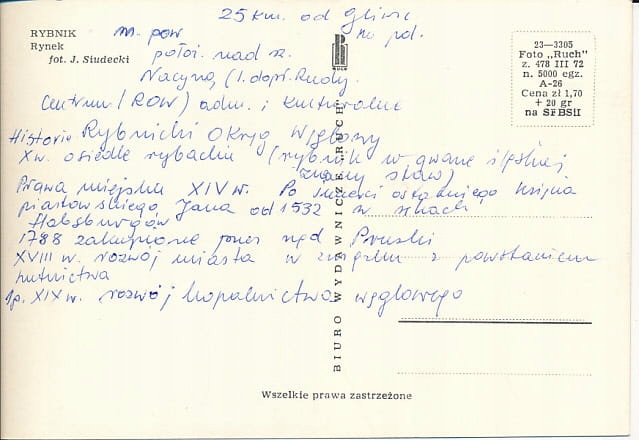 RYBNIK
Rynek
fot. J. Siudecki
25 km. od Gliwic
m. pow na pd.
położ. nad rz.
Nacyną (l. dopł. Rudy.
Centrum (ROW) adm. i kulturalne
Historia Rybnicki Okręg Węglowy
X w. osiedle rybackie (rybnik w gwarze śląskiej
znany staw)
Prawa miejskie XIV w. Po śmierci ostatniego księcia
piastowskiego Jana od 1532 w rękach
Habsburgów
1788 zakupione przez rząd Pruski
XVIII w. rozwój miasta w związku z powstaniem
hutnictwa
1p. XIX w. rozwój kopalnictwa węglowego
BIURO WYDAWNICZE „RUCH"
RUCH
23—3305
Foto „Ruch"
z. 478 III 72
n. 5000 egz.
A-26
Cena zł 1,70
+ 20 gr
na SFBSiI
Wszelkie prawa zastrzeżone